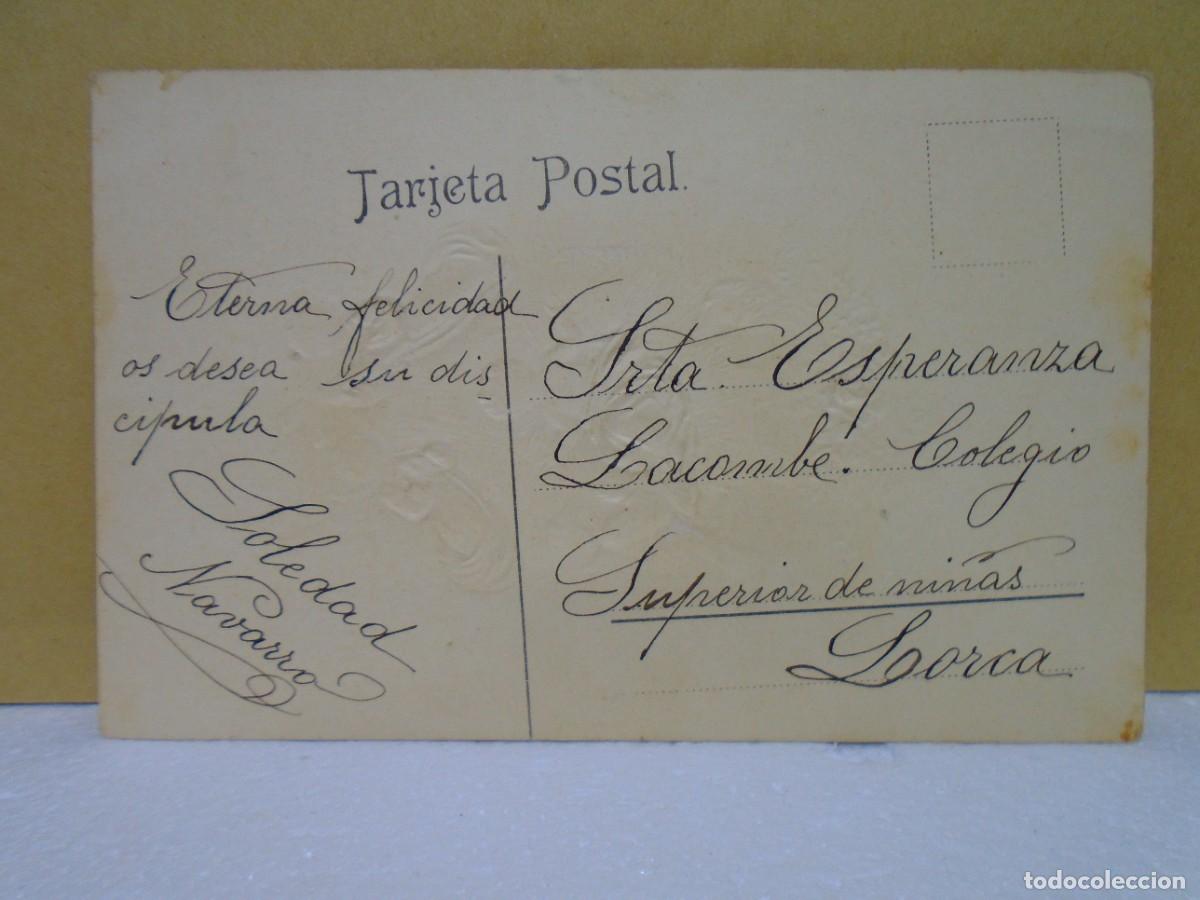 Tarjeta Postal.
Eterna felicidad
os desea su dis-
cipula
Soledad
Navarro
Srta. Esperanza
Lacombe. Colegio
Superior de niñas
Lorca
todocoleccion